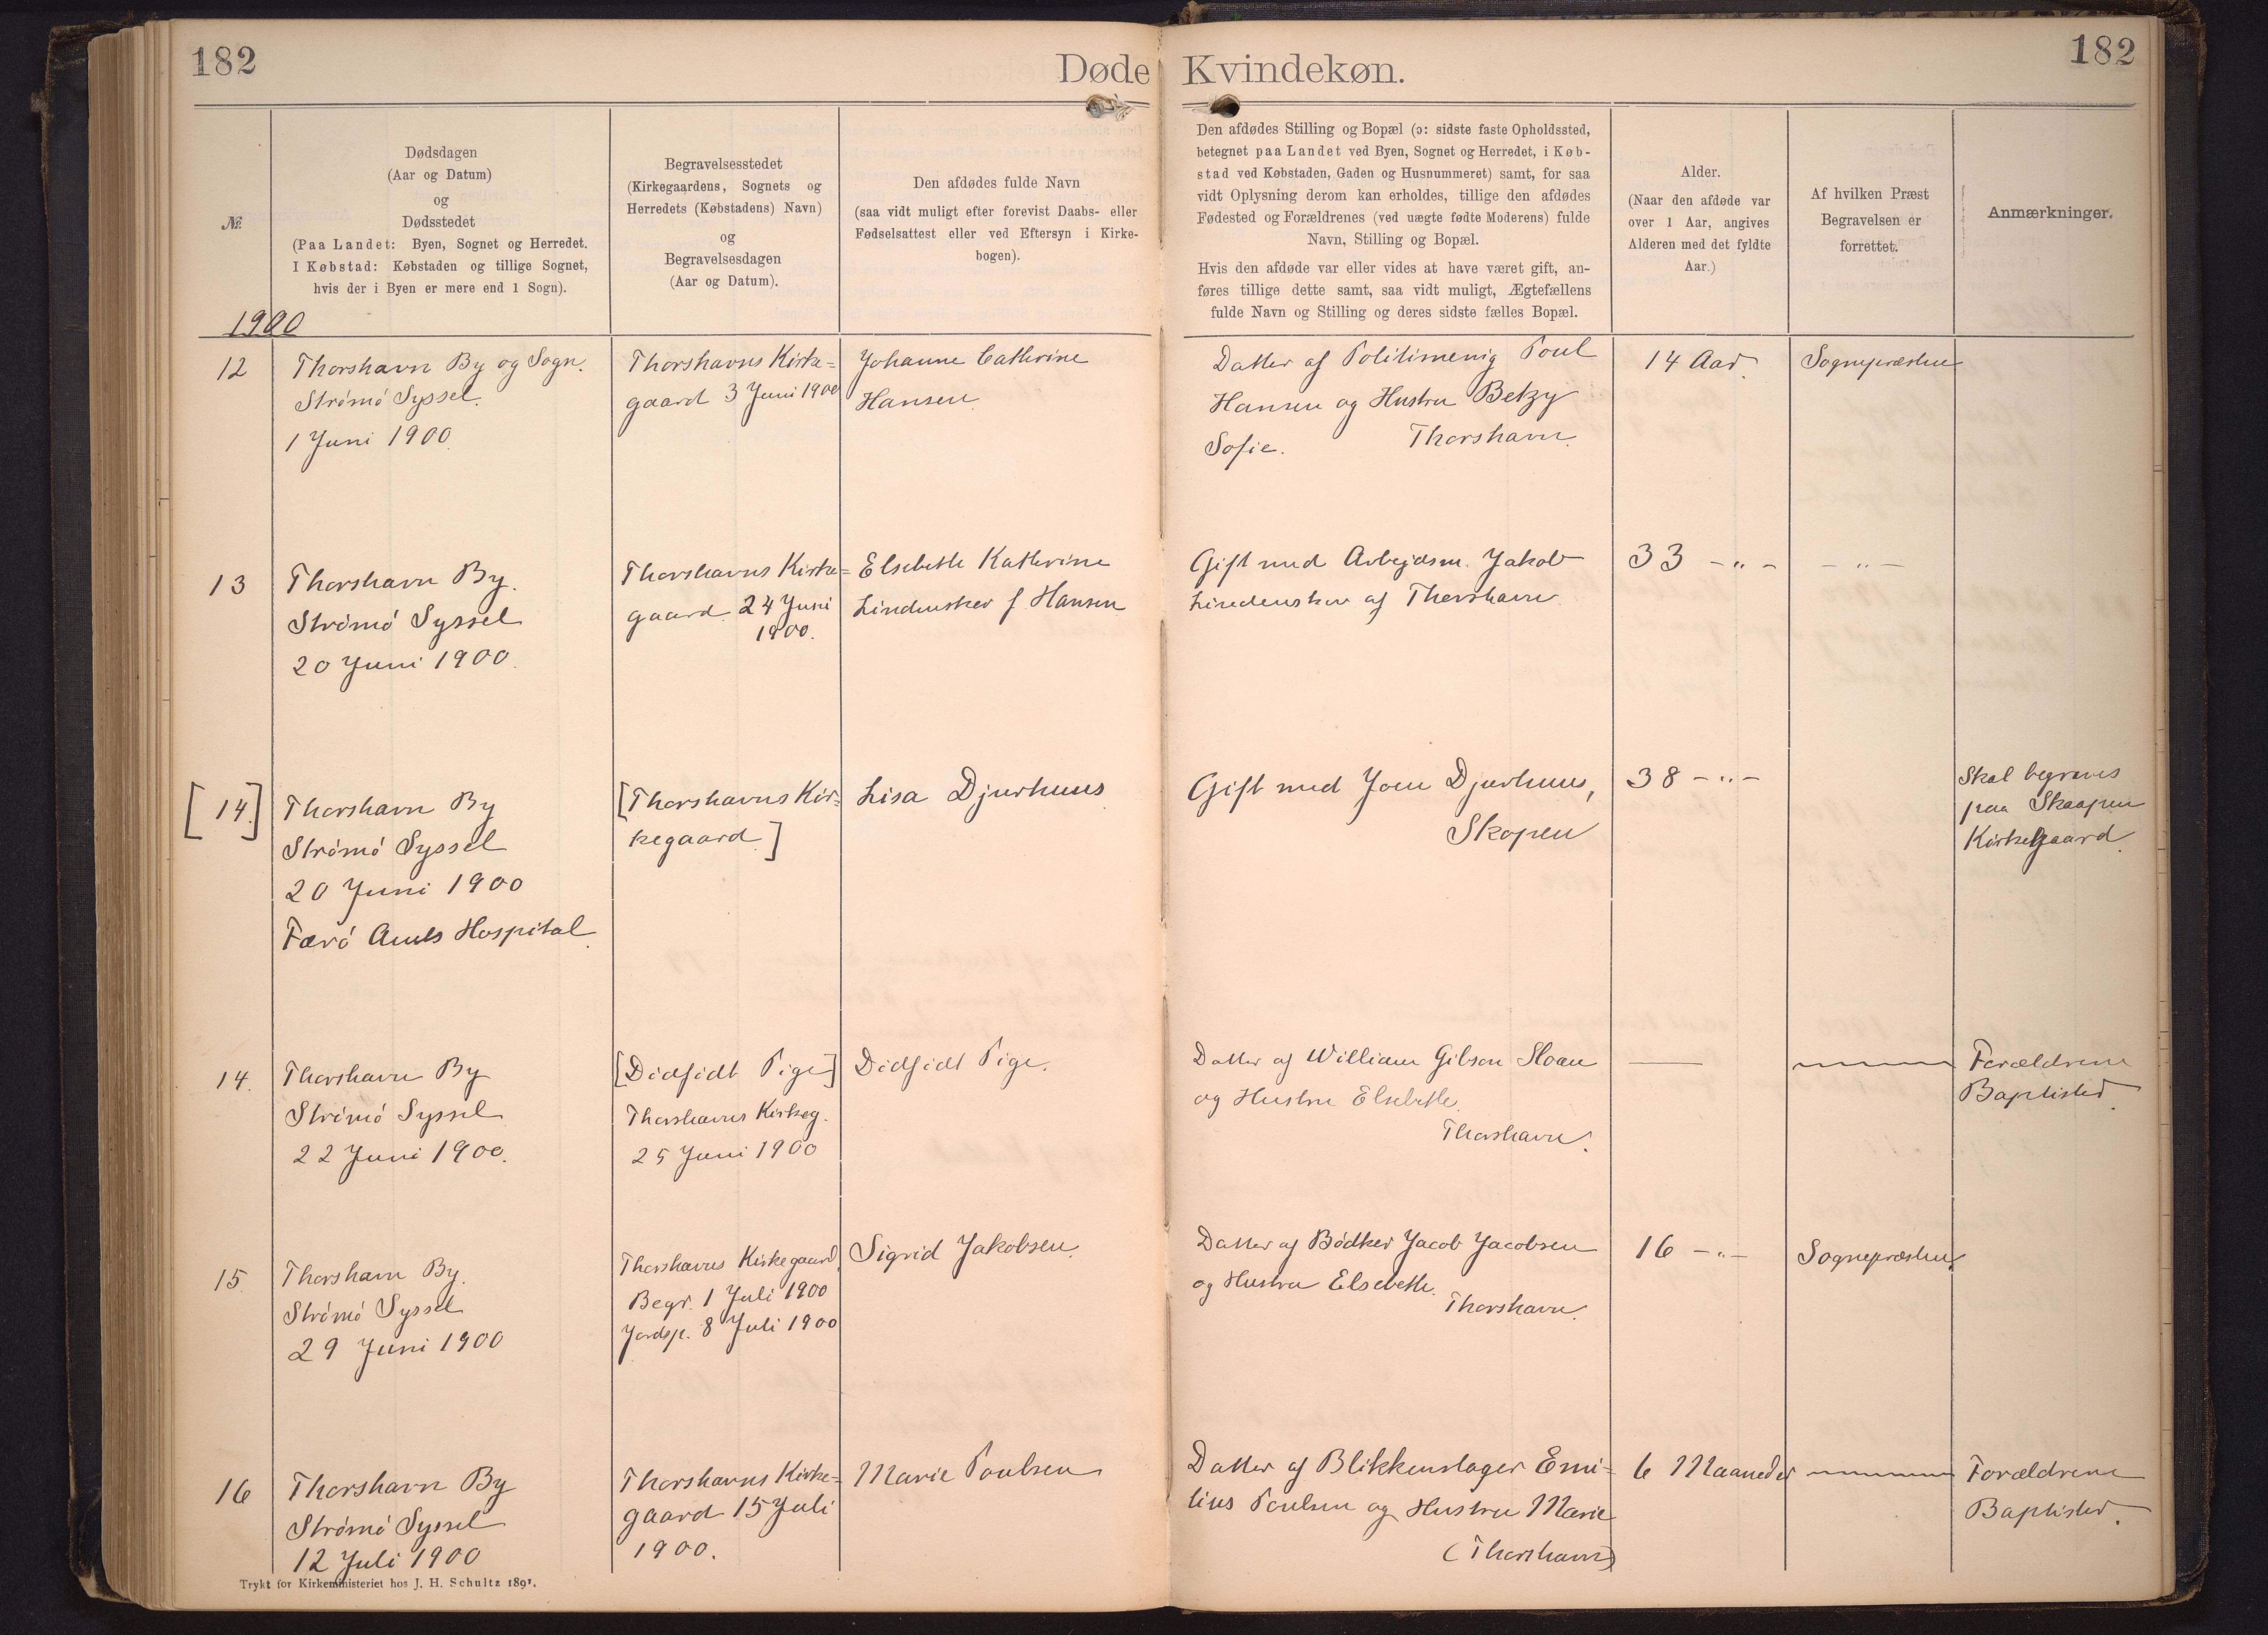 182
Døde Kvindekøn.
182
№
Dødsdagen
(Aar og Datum)
og
Dødsstedet
(Paa Landet: Byen, Sognet og Herredet.
I Købstad: Købstaden og tillige Sognet,
hvis der i Byen er mere end 1 Sogn).
Begravelsesstedet
(Kirkegaardens, Sognets og
Herredets (Købstadens) Navn)
og
Begravelsesdagen
(Aar og Datum).
Den afdødes fulde Navn
(saa vidt muligt efter forevist Daabs- eller
Fødselsattest eller ved Eftersyn i Kirke-
bogen).
Den afdødes Stilling og Bopæl (ɔ: sidste faste Opholdssted,
betegnet paa Landet ved Byen, Sognet og Herredet, i Køb-
stad ved Købstaden, Gaden og Husnummeret) samt, for saa
vidt Oplysning derom kan erholdes, tillige den afdødes
Fødested og Forældrenes (ved uægte fødte Moderens) fulde
Navn, Stilling og Bopæl.
Hvis den afdøde var eller vides at have været gift, an-
føres tillige dette samt, saa vidt muligt, Ægtefællens
fulde Navn og Stilling og deres sidste fælles Bopæl.
Alder.
(Naar den afdøde var
over 1 Aar, angives
Alderen med det fyldte
Aar.)
Af hvilken Præst
Begravelsen er
forrettet.
Anmærkninger.
1900
12
Thorshavn By og Sogn.
Strømø Syssel.
1 Juni 1900.
Thorshavns Kirke=
gaard 3 Juni 1900
Johanne Cathrine
Hansen.
Datter af Politimenig Poul
Hansen og Hustru Betzy
Sofie. Thorshavn.
14 Aar.
Sognepræsten
13
Thorshavn By.
Strømø Syssel
20 Juni 1900.
Thorshavns Kirke=
gaard. 24 Juni
1900.
Elsebeth Kathrine
Lindenskov f. Hansen
Gift med Arbejdsm. Jakob
Lindenskov af Thorshavn.
33 - „ -
- „ -
[14.]
Thorshavn By
Strømø Syssel
20 Juni 1900
Færø Amts Hospital.
[Thorshavns Kir=
kegaard.]
Lisa Djurhuus.
Gift med Joen Djurhuus,
Skopen
38 - „ -
Skal begraves
paa Skaapen
Kirkegaard.
14.
Thorshavn By
Strømø Syssel
22 Juni 1900.
[Dødfødt Pige]
Thorshavns Kirkeg.
25 Juni 1900
Dødfødt Pige.
Datter af William Gibson Sloan
og Hustru Elsebeth.
Thorshavn.
Forældrene
Baptister.
15.
Thorshavn By.
Strømø Syssel
29 Juni 1900
Thorshavns Kirkegaard.
Begr. 1 Juli 1900
Jordsp. 8 Juli 1900
Sigrid Jakobsen.
Datter af Bødker Jacob Jacobsen
og Hustru Elsebeth.
Thorshavn.
16 - „ -
Sognepræsten.
16
Thorshavn By
Strømø Syssel
12 Juli 1900
Thorshavns Kirke=
gaard 15 Juli
1900.
Marie Poulsen
Datter af Blikkenslager Emi=
lius Poulsen og Hustru Marie
(Thorshavn)
6 Maaneder
Forældrene
Baptister.
Trykt for Kirkeministeriet hos J. H. Schultz 1891.